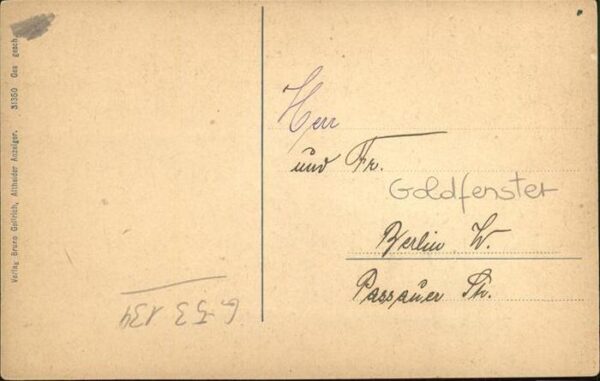 Herr
und Fr.
Goldfenster
Berlin W.
Passauer Str.
G-53 134
Verlag Bruno Gallrich, Altheider Anzeiger. 31350 Ges gesch.